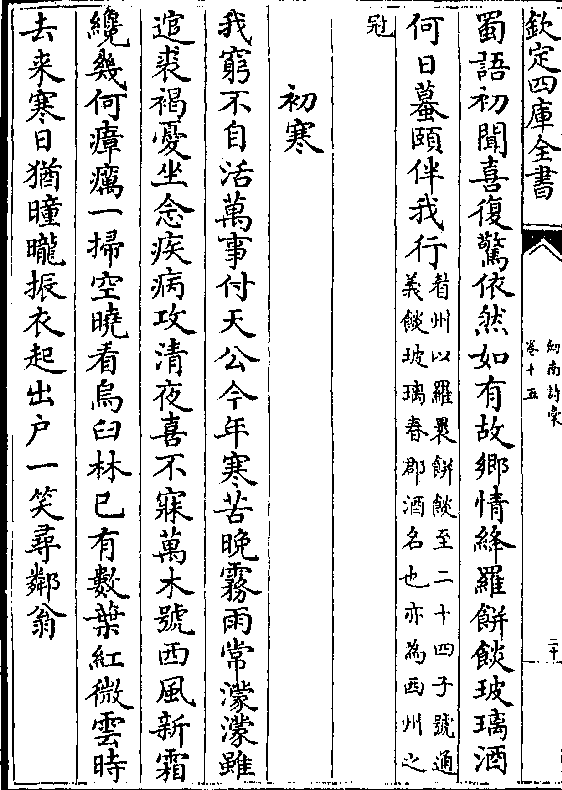 欽定四庫全書
劍南詩稾
卷十五
二十
蜀語初聞喜復驚依然如有故鄉情絳羅餅餤玻璃酒
何日蟇頤伴我行
眉州以羅裹餅餤至二十四子號通
義餤玻璃春郡酒名也亦為西州之
冠
初寒
我窮不自活萬事付天公今年寒苦晩霧雨常濛濛雖
逭裘褐憂坐念疾病攻清夜喜不寐萬木號西風新霜
纔幾何瘴癘一掃空曉看烏臼林已有數葉紅微雲時
去来寒日猶曈曨振衣起出户一笑尋鄰翁